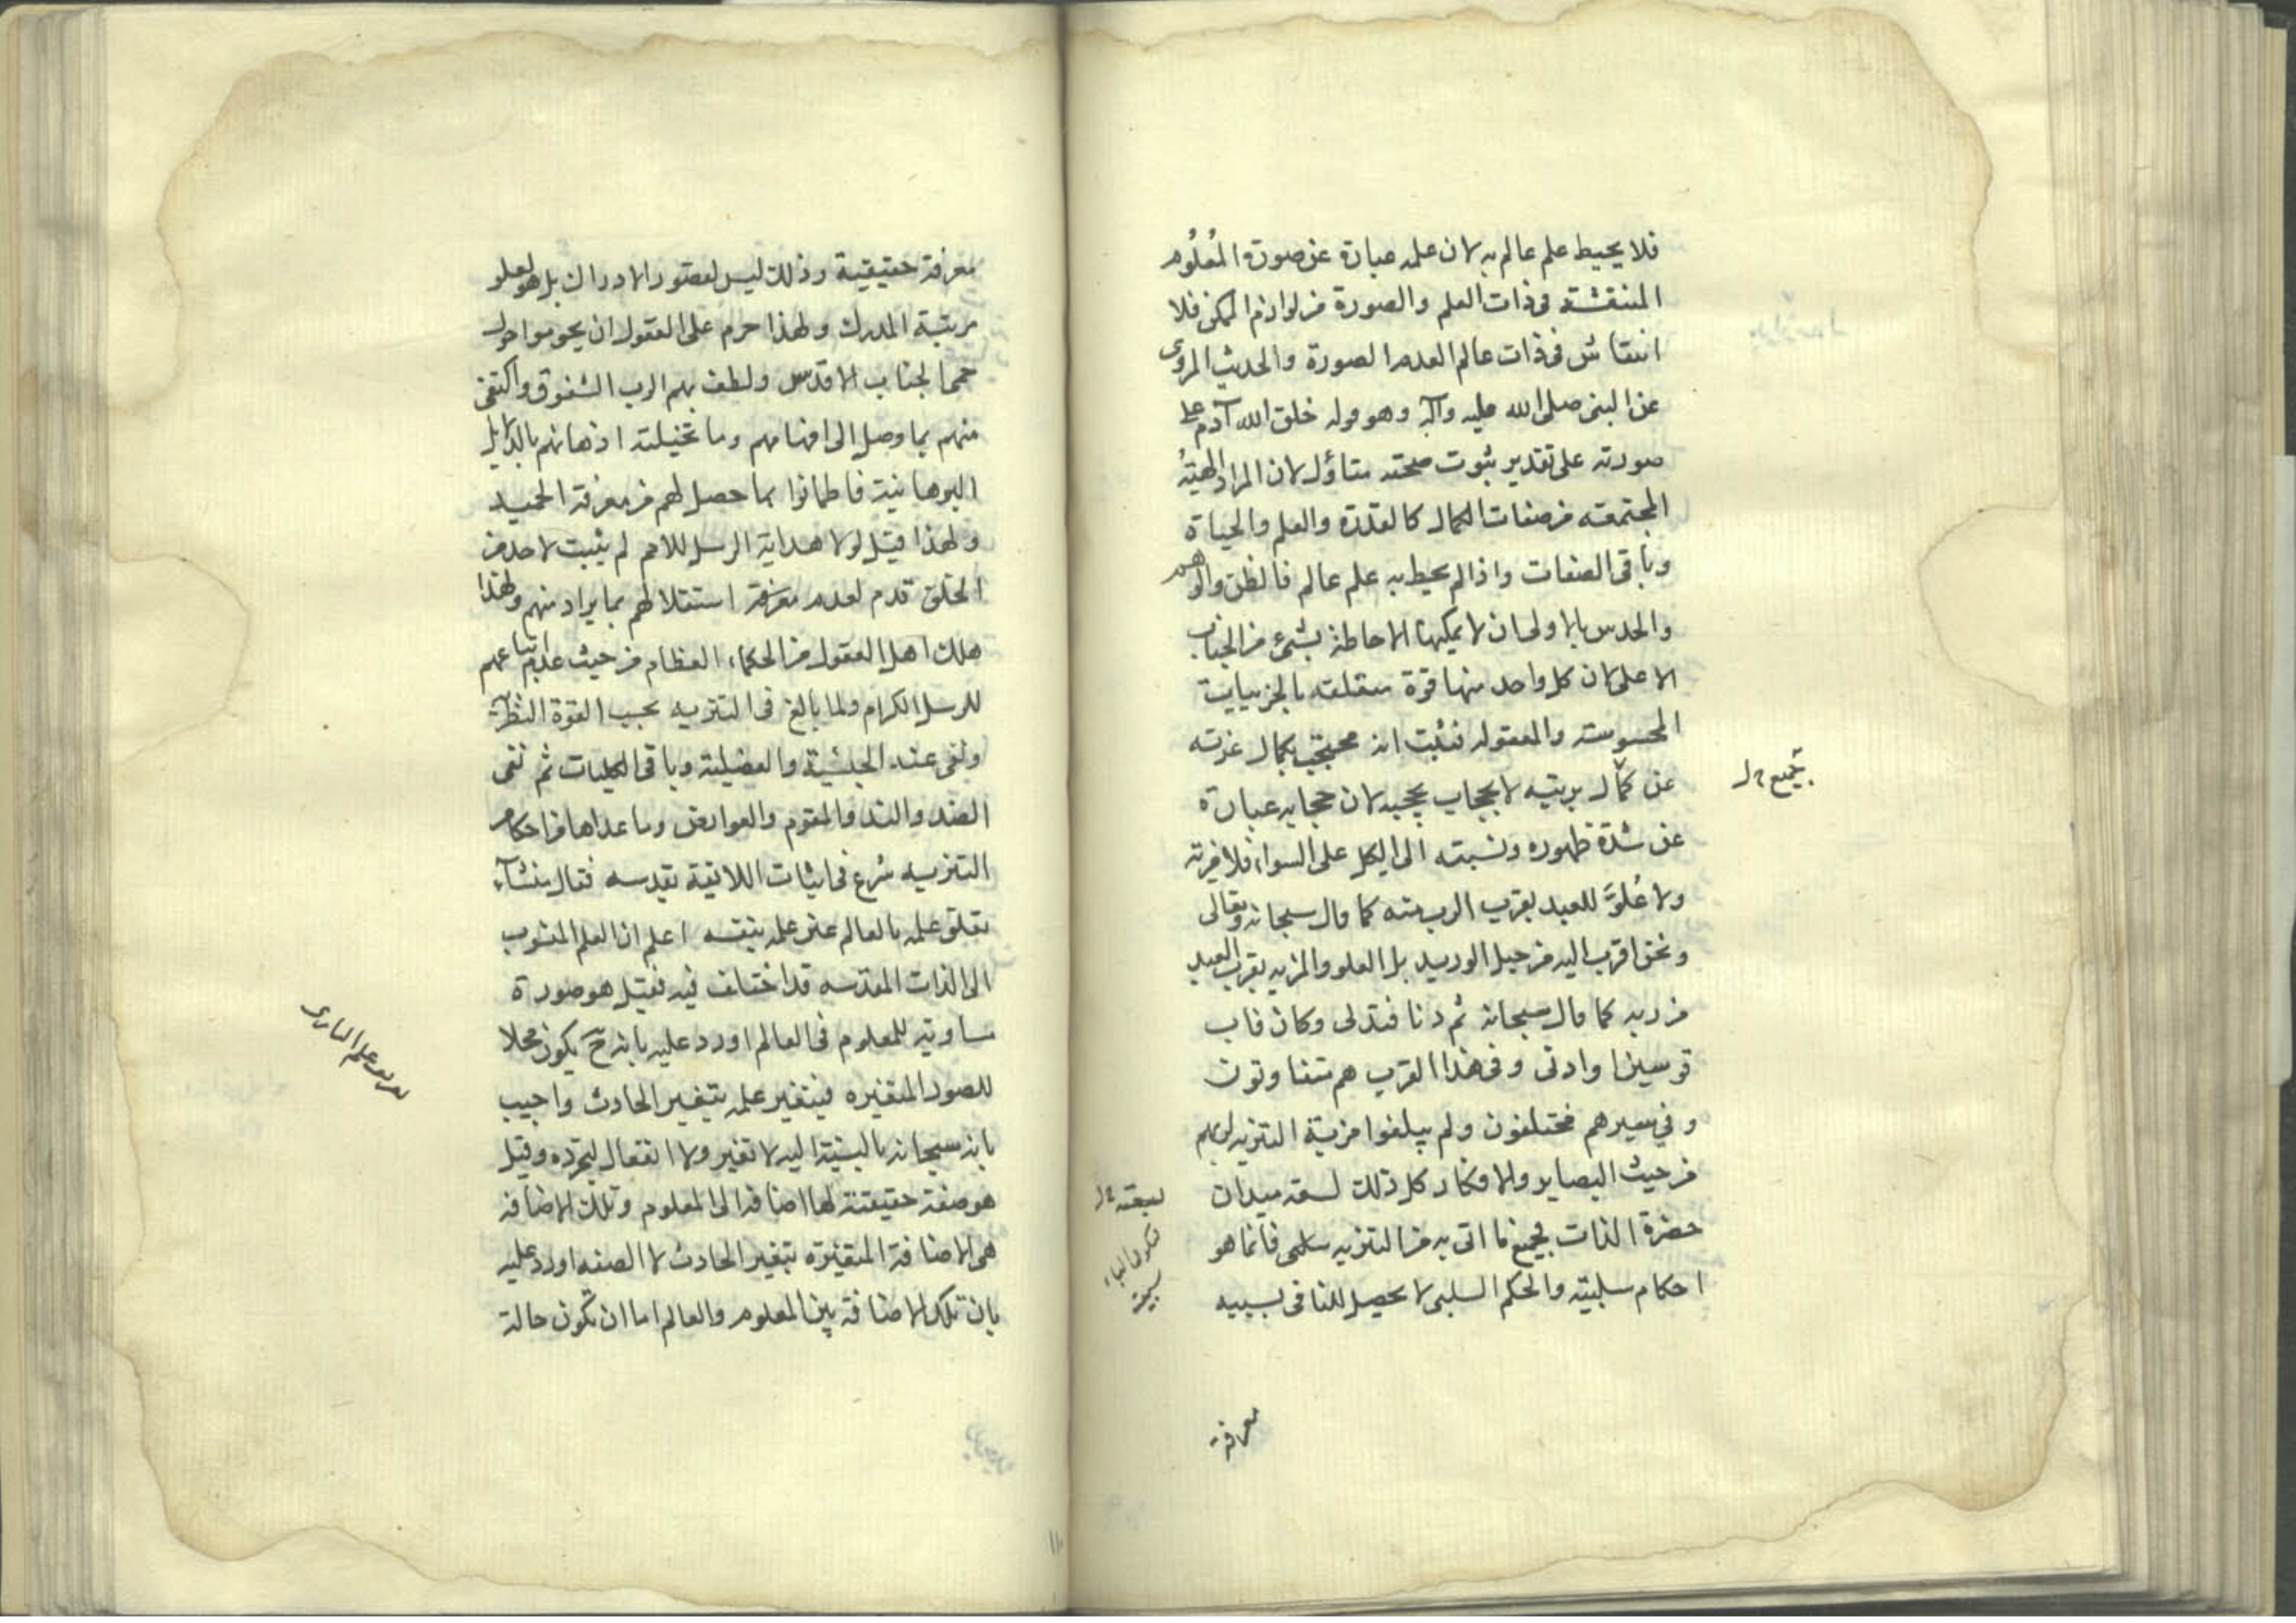 فلا يحيط علم عالم به لان علمه عبارة عن صورة المعلوم
المنتقشة فى ذات العلم والصورة من لوازم الممكن فلا
انتقاش فى ذات عالم العدم الصورة والحديث المروى
عن النبى صلى الله عليه وآله وهو قوله خلق الله آدم على
صورته على تقدير ثبوت صحته متاؤل لان المراد الهيئة
المجتمعة من صفات الكمال كالقدرة والعلم والحياة
وباقى الصفات واذا لم يحيط به علم عالم فالظن والوهم
والحدس بالاولى ان لا يمكنها الاحاطة بشئ من الجناب
الاعلى لان كل واحد منها قوة متعلقه بالجزييات
المحسوسة والمعقوله فثبت انه محتجب بكمال عزته
عن كمال بريته لا بحجاب يحجبه لان حجابه عبارة
عن شدة ظهوره ونسبته الى الكل على السواء فلا مزية
ولا علو للعبد بقرب الرب منه كما قال سبحانه وتعالى
ونحن اقرب اليه من حبل الوريد بل العلو والمزيه بقرب العبد
من ربه كما قال سبحانه ثم دنا فتدلى وكان قاب
قوسين او ادنى وفى هذا القرب هم متفاوتون
وفى سيرهم مختلفون ولم يبلغوا مزية التنزيه
من حيث البصاير والافكار كل ذلك لسعة ميدان
حضرة الذات فجميع ما اتى به من التنزيه سلبى فانما هو
احكام سلبية والحكم السلبى لا يحصل للنافى بسببه
بجميع
معرفة
معرفة حقيقية وذلك ليس لقصور الادراك بل هو لعلو
مرتبة المدرك ولهذا حرم على العقول ان يحوموا حول
حمى الجناب الاقدس ولطف بهم الرب الشفوق واكتفى
منهم بما وصل الى افهامهم وما تخيلته اذهانهم بالدلايل
البرهانية فاطمانوا بما حصل لهم من معرفة الحميد
ولهذا قيل لولا هداية الرسل للامم لم يثبت لاحد من
الخلق قدم لعدم معرفة استقلالهم بما يراد منهم ولهذا
هلك اهل العقول من الحكماء العظام من حيث عدم اتباعهم
للرسل الكرام ولما بالغ فى التنزيه بحسب القوة النظرية
ونفى عنه الجنسية والفصلية وباقى الكليات ثم نفى
الضد والند والمقوم والعوارض وما عداها من احكام
التنزيه شرع فى اثبات اللائقة بقدسه فقال منشآء
تعلق علمه بالعالم عين علمه بنفسه اعلم ان العلم المنسوب
الى الذات المقدسه قد اختلف فيه فقيل هو صورة
مساوية للمعلوم فى العالم اورد عليه بانه ح يكون محلا
للصور المتغيره فيتغير علمه بتغير الحادث واجيب
بانه سبحانه بالنسبة اليه لا تغير ولا انفعال لتجرده وقيل
هو صفة حقيقية لها اضافة الى المعلوم وتلك الاضافة
هى الاضافة المتغيرة بتغير الحادث لا الصفه اورد عليه
بان تلك الاضافة بين المعلوم والعالم اما ان تكون حالة